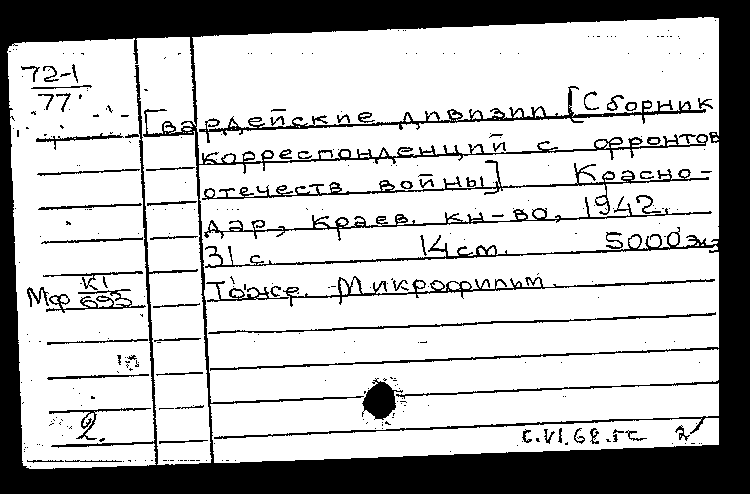 72-1
77
Гвардейские дивизии. [Сборник
корреспонденций с фронтов
отечеств. войны]. Красно-
дар, краев. кн-во, 1942.
31 с. 14 см. 5000 эк
Мф К1/693 Тоже. Микрофильм.
2.